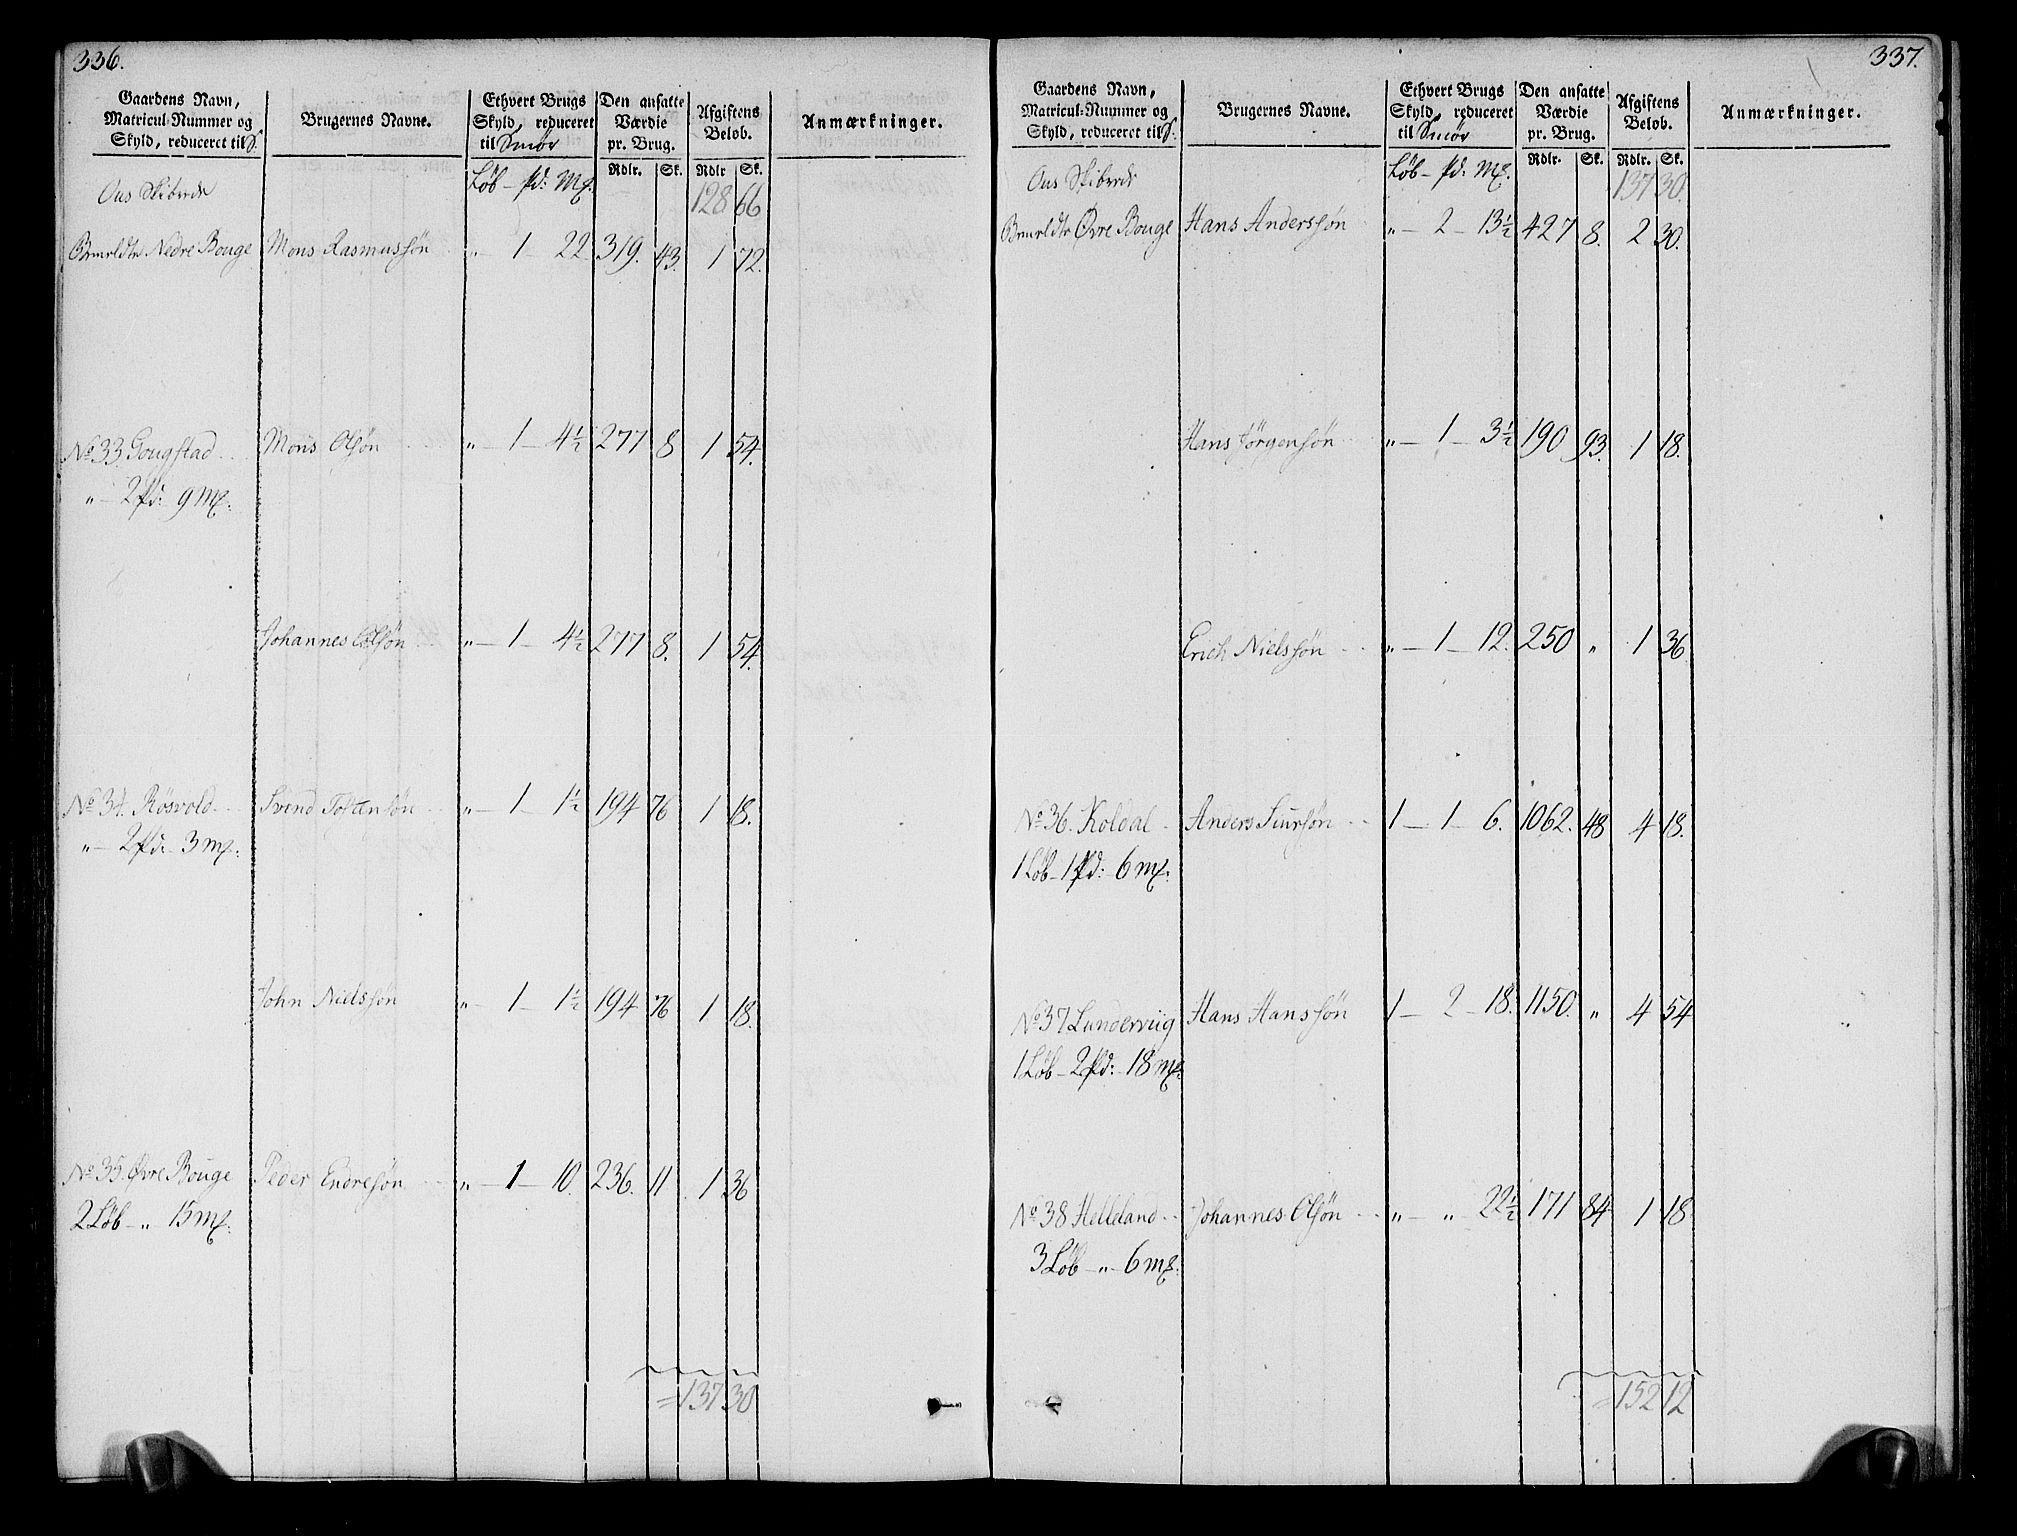 336.
Gaardens Navn, Matricul-Nummer og Skyld, reduceret til S. | Brugernes Navne. | Ethvert Brugs Skyld, reduceret til Smør | Den ansatte Værdie pr. Brug. | Afgiftens Beløb. | Anmærkninger.
Løb - pd: Mk. | Rdlr. | Sk. | Rdlr | Sk.
Ous Skibrede 128 66
Bemeldte Nedre Bouge Mons Rasmussøn „ - 1 - 22. 319. 43. 1 72.
No 33. Gougstad Mons Olsøn „ - 1 - 4½ 277 8 1 54.
„ - 2 pd: 9 Mk.
Johannes Olsøn „ - 1 - 4½ 277 8. 1 54.
No 34. Røsvold Svend Tostensøn „ - 1 - 1½ 194 76 1 18.
„ - 2 pd: 3 mk:
John Nielssøn „ - 1 - 1½ 194 76 1 18.
No 35. Øvre Bouge Peder Endresøn „ - 1 - 10. 236. 11 1 36
2 Løb - „ 15 mk:
= 137 30
337.
Gaardens Navn, Matricul-Nummer og Skyld, reduceret til S. | Brugernes Navne. | Ethvert Brugs Skyld, reduceret til Smør | Den ansatte Værdie pr. Brug. | Afgiftens Beløb. | Anmærkninger.
Løb - pd: Mk. | Rdlr. | Sk. | Rdlr. | Sk.
Ous Skibrede 137 30.
Bemeldte Øvre Bouge Hans Anderssøn „ - 2 - 13½ 427 8. 2 30.
Hans Jørgensøn „ - 1 - 3½ 190 93. 1 18.
Erich Nielssøn „ - 1 - 12. 250 „ 1 36
No 36. Koldal Anders Siursøn 1 - 1 - 6. 1062. 48 4 18.
1 Løb - 1 pd: 6 mk:
No 37 Lundervüg Hans Hanssøn 1 - 2 - 18. 1150. „ 4 54
1 Løb - 2 pd: 18 mk:
No 38 Helleland Johannes Olsøn „ - „ 22½ 171 84 1 18
3 Løb - „ - 6 mk:
= 152 12